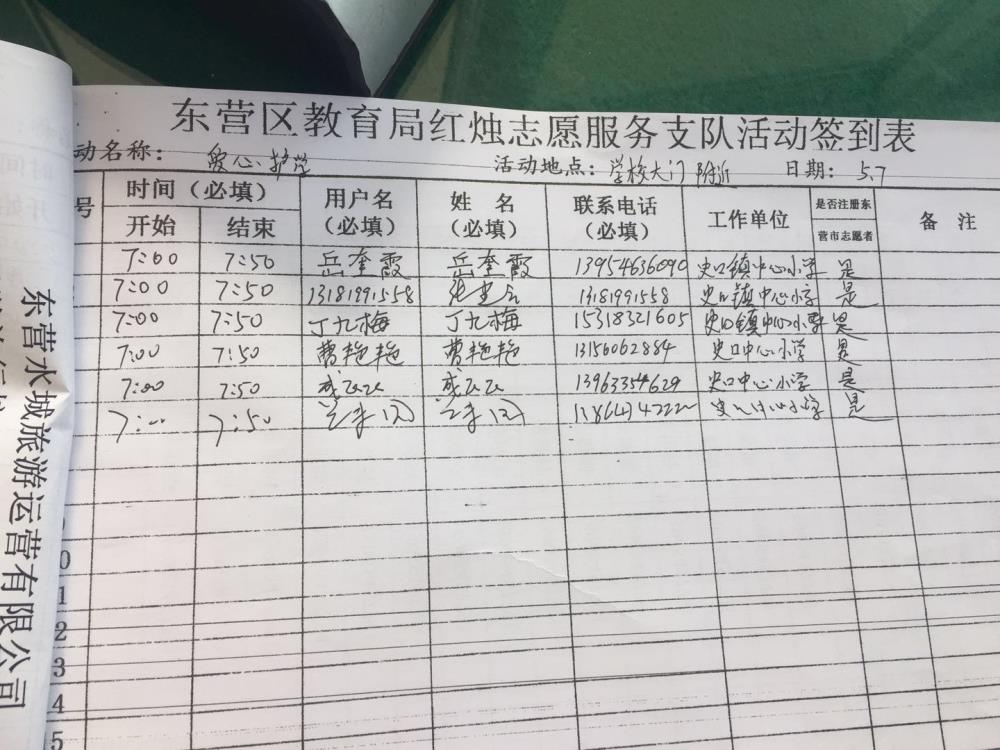 东营区教育局红烛志愿服务支队活动签到表
动名称： 爱心护学 活动地点：学校大门附近 日期： 5.7
号 时间（必填） 用户名（必填） 姓 名（必填） 联系电话（必填） 工作单位 是否注册东营市志愿者 备 注
开始 结束
7:00 7:50 岳奎霞 岳奎霞 13954636090 史口镇中心小学 是
7:00 7:50 13181991558 13181991558 史口镇中心小学 是
7:00 7:50 丁九梅 丁九梅 15318321605 史口镇中心小学 是
7:00 7:50 曹艳艳 曹艳艳 13156062884 史口中心小学 是
7:00 7:50 13963354629 史口中心小学 是
7:00 7:50 史口中心小学 是
0
1
2
3
4
5
东营水城旅游运营有限公司